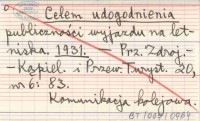 Celem udogodnienia
publiczności wyjazdu na let-
niska. 1931. — Prz. Zdroj.-
-Kąpiel. i Przew. Turyst. 20,
nr 6: 83.
Komunikacja kolejowa.